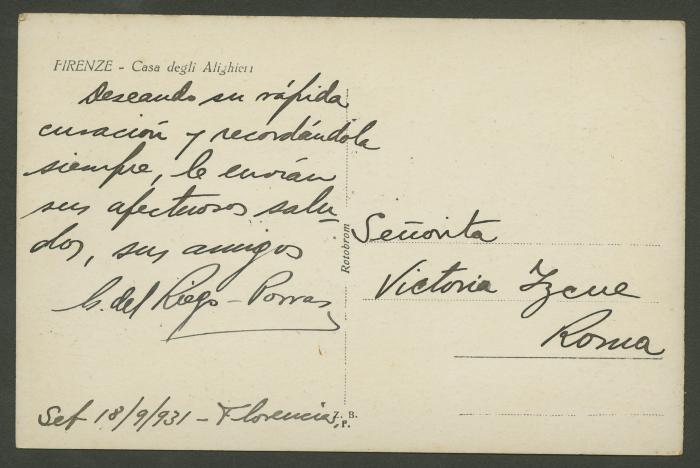 FIRENZE - Casa degli Alighieri
Deseando su rápida
curación y recordándola
siempre, le envían
sus afectuosos salu-
dos, sus amigos
G. del Riego-Porras
Set 18/9/931 - Florencia
Rotobrom
Z. B.
F.
Señorita
Victoria Izcue
Roma